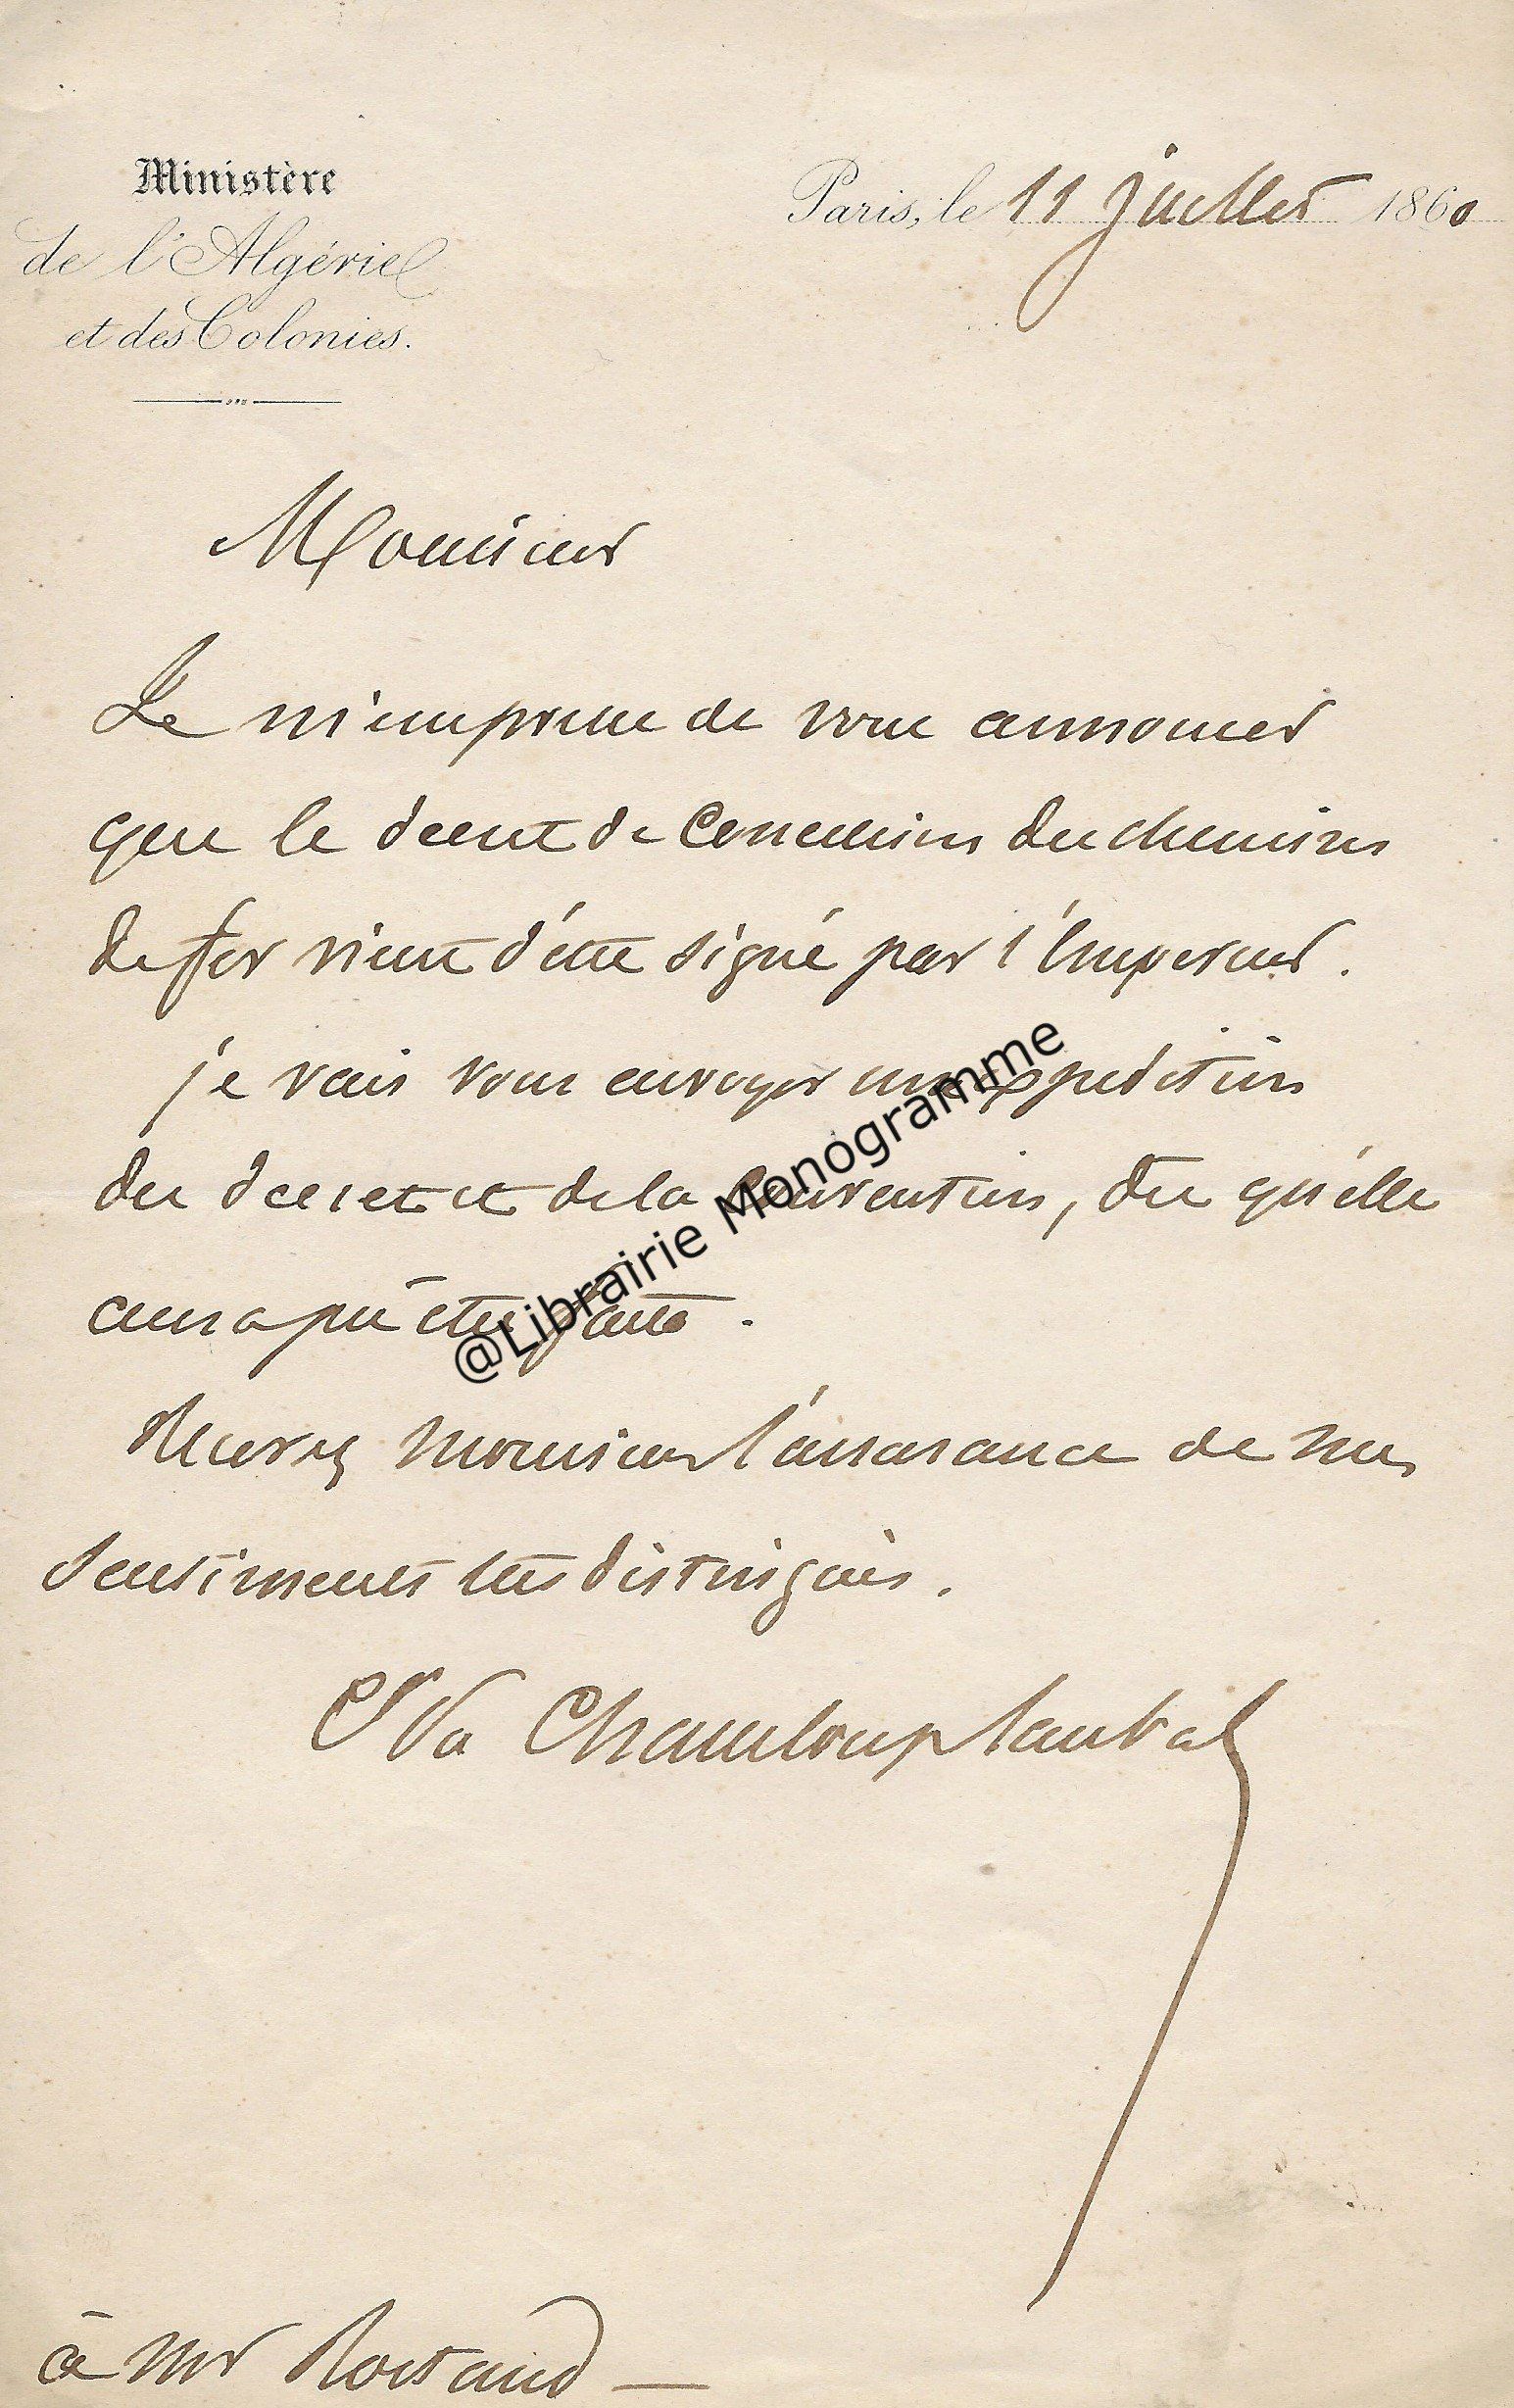 Ministère
de l'Algérie
et des Colonies.
Paris, le 11 juillet 1860
Monsieur
Je m'empresse de vous annoncer
que le décret de Concession des chemins
de fer vient d'être signé par l'Empereur.
je vais vous envoyer une expédition
du décret et de la Convention, dès qu'elle
aura pu être faite.
Recevez Monsieur l'assurance de mes
sentiments très distingués.
Cte Pr Chasseloup Laubat
à Mr Rostand
@Librairie Monogramme